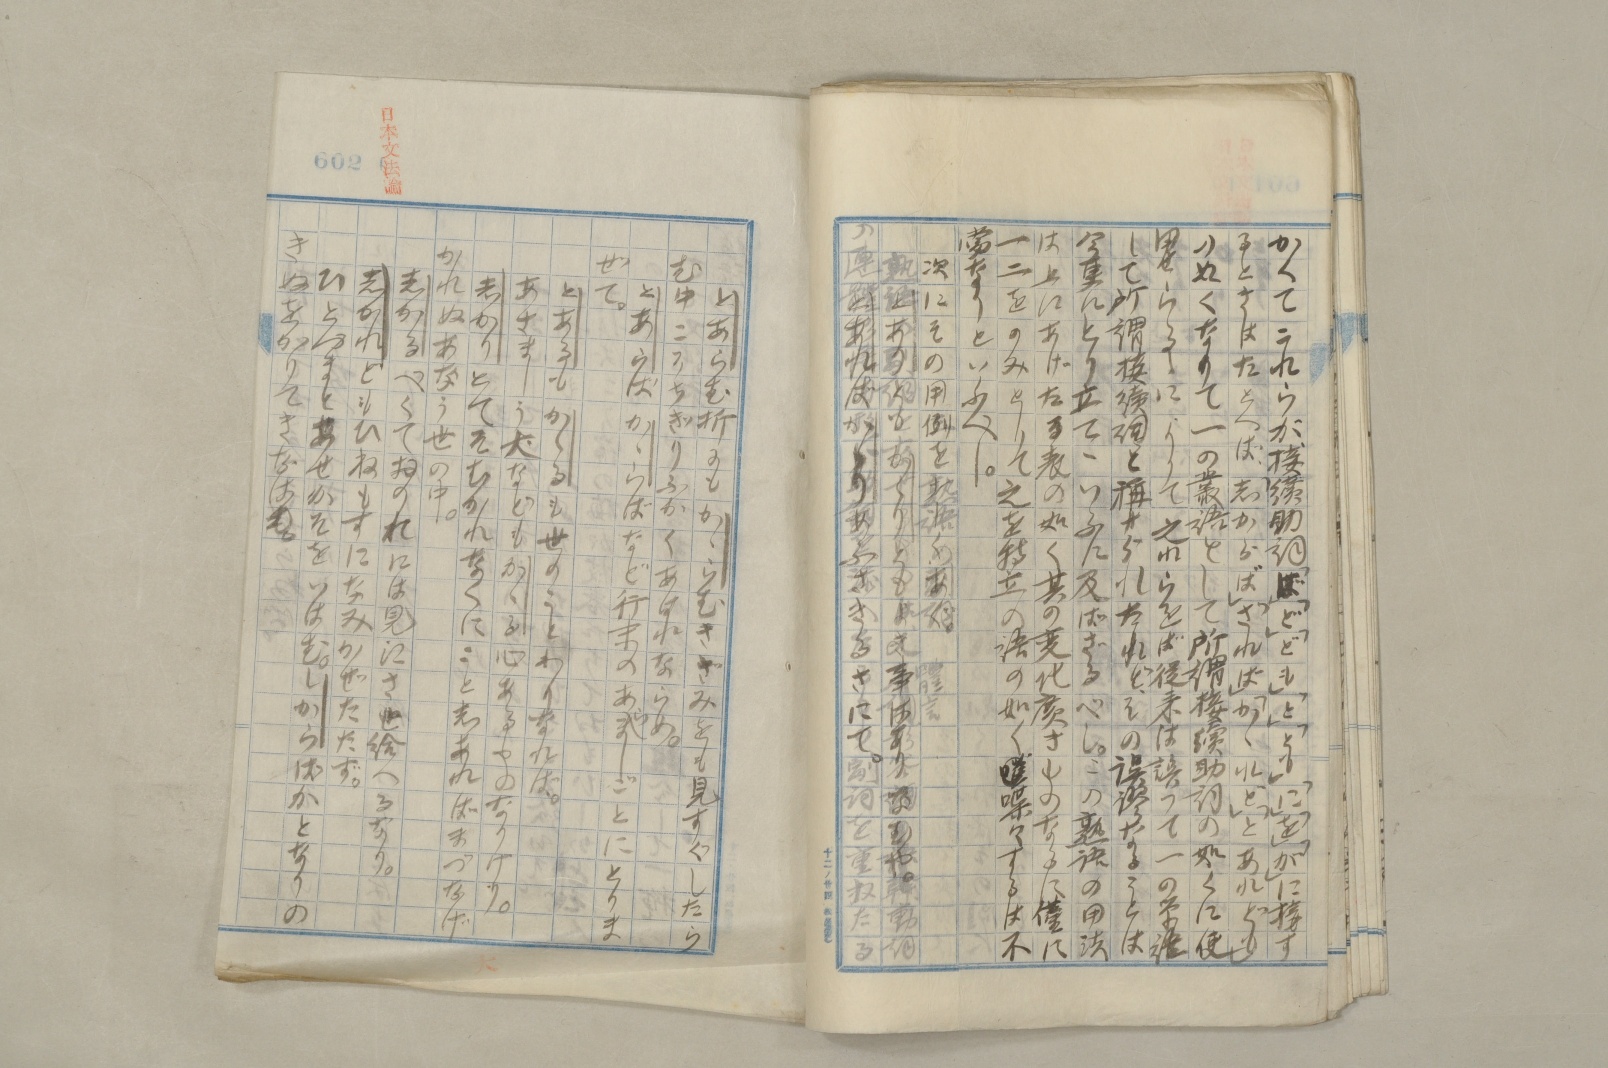 かくてこれらが、接續助詞「ば」「ど」「ども」「と」「とも」「に」「を」「が」に接す
るときはたとへば、「志からば」「されば」「かゝれど」「とあれども」
の如くなりて一の叢語として所謂接續助詞の如くに使
用せらるゝによりて之れらをば從来は誤つて一の單語
して所謂接續詞と稱せられたれど、その誤謬なることは
今更にとり立てゝいふに及ばざるべし。この熟語の用法
は上にあげたる表の如く其の変化廣きものなるに僅に
一二をのみとりて之を特立の語の如く喋々するは不
當なりといふべし。
次にその用例を
602
日本文法論
とあらむ折にもかゝらむきざみをも見すぐしたら
む中こそちぎりふかくあはれならめ。
とあらばかゝらばなど行末のあらましごとにとりま
ぜて。
とあるもかゝるも世のことわりなれば。
あさましう犬などもかゝる心あるものなりけり。
志かりとてそむかれなくにこと志あればまづなげ
かれぬあなう世の中。
志かるべくておのれには見にさせ給へるなり。
志かれどもひねもすになみかぜたたず。
ひとづまとあせかそをいはむ。しからばかとなりの
きぬをかりてきなはも。